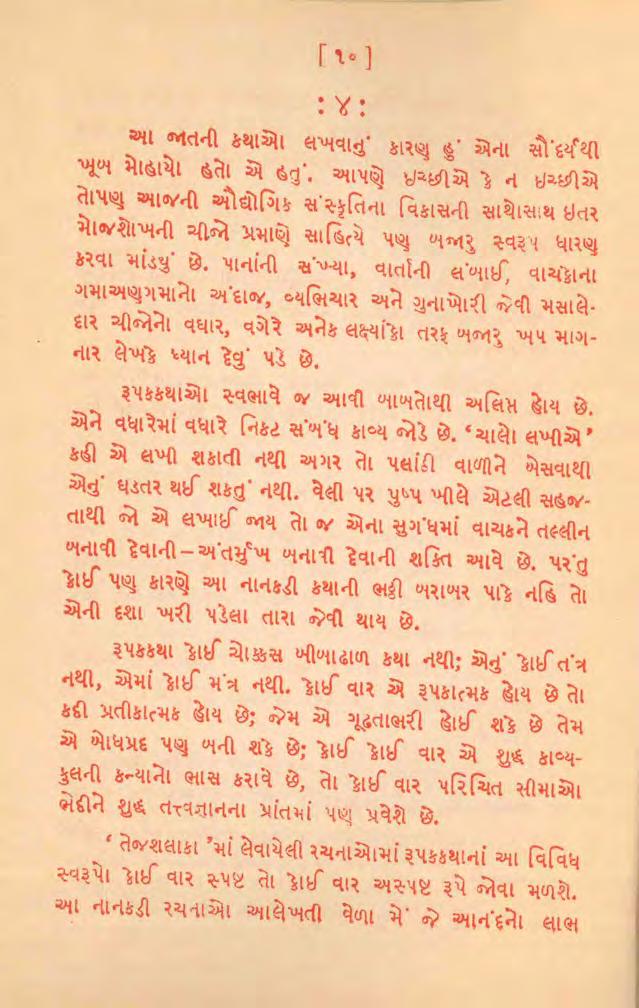 [ ૧૦ ]
: ૪ :
આ જાતની કથાઓ લખવાનું કારણ હું એના સૌંદર્યથી
ખૂબ મોહાયો હતો એ હતું. આપણે ઇચ્છીએ કે ન ઇચ્છીએ
તોપણ આજની ઔદ્યોગિક સંસ્કૃતિના વિકાસની સાથોસાથ ઇતર
મોજશોખની ચીજો પ્રમાણે સાહિત્યે પણ બજારુ સ્વરૂપ ધારણ
કરવા માંડયું છે. પાનાંની સંખ્યા, વાર્તાની લંબાઈ, વાચકોના
ગમાઅણગમાનો અંદાજ, વ્યભિચાર અને ગુનાખોરી જેવી મસાલે-
દાર ચીજોનો વઘાર, વગેરે અનેક લક્ષ્યાંકો તરફ બજારુ ખપ માગ-
નાર લેખકે ધ્યાન દેવું પડે છે.
રૂપકકથાઓ સ્વભાવે જ આવી બાબતોથી અલિપ્ત હોય છે.
એને વધારેમાં વધારે નિકટ સંબંધ કાવ્ય જોડે છે. ‘ચાલો લખીએ’
કહી એ લખી શકાતી નથી અગર તો પલાંઠી વાળીને બેસવાથી
એનું ઘડતર થઈ શકતું નથી. વેલી પર પુષ્પ ખીલે એટલી સહજ-
તાથી જો એ લખાઈ જાય તો જ એના સુગંધમાં વાચકને તલ્લીન
બનાવી દેવાની–અંતર્મુખ બનાવી દેવાની શક્તિ આવે છે. પરંતુ
કોઈ પણ કારણે આ નાનકડી કથાની ભઠ્ઠી બરાબર પાકે નહિ તો
એની દશા ખરી પડેલા તારા જેવી થાય છે.
રૂપકકથા કોઈ ચોક્કસ બીબાઢાળ કથા નથી; એનું કોઈ તંત્ર
નથી, એમાં કોઈ મંત્ર નથી. કોઈ વાર એ રૂપકાત્મક હોય છે તો
કદી પ્રતીકાત્મક હોય છે; જેમ એ ગૂઢતાભરી હોઈ શકે છે તેમ
એ બોધપ્રદ પણ બની શકે છે; કોઈ કોઈ વાર એ શુદ્ધ કાવ્ય-
કુલની કન્યાનો ભાસ કરાવે છે, તો કોઈ વાર પરિચિત સીમાઓ
ભેદીને શુદ્ધ તત્ત્વજ્ઞાનના પ્રાંતમાં પણ પ્રવેશે છે.
‘ તેજશલાકા ’માં લેવાયેલી રચનાઓમાં રૂપકકથાનાં આ વિવિધ
સ્વરૂપો કોઈ વાર સ્પષ્ટ તો કોઈ વાર અસ્પષ્ટ રૂપે જોવા મળશે.
આ નાનકડી રચનાઓ આલેખતી વેળા મેં જે આનંદનો લાભ